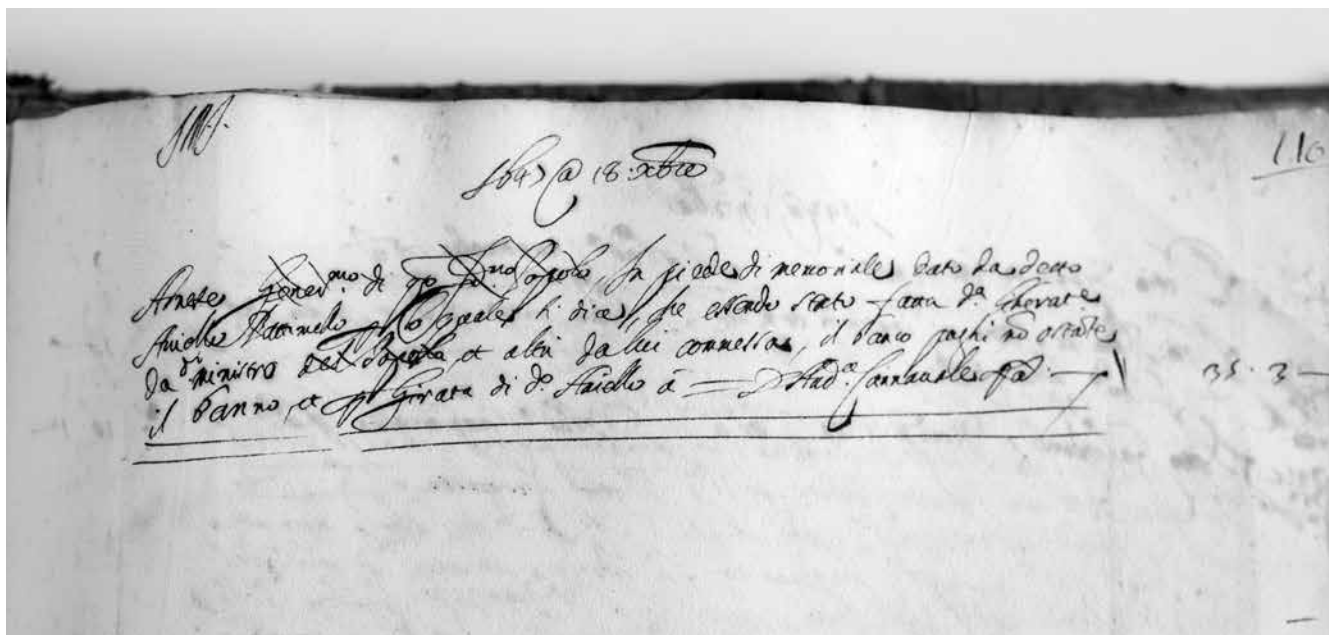 1647 @ 18 xbre
110
Arnese Gener.mo di qo fid.mo Popolo, In piede di memoriale dato da detto
Aniello per lo quale si dice, che essendo stato fatta da. Girata
da dº ministro del Popolo, et altri da lui commessa, il banco paghi nō ostāte
il banno, et per Girata di dº. Aniello à D. And.ª Carnavale pa. 35 . 3 —